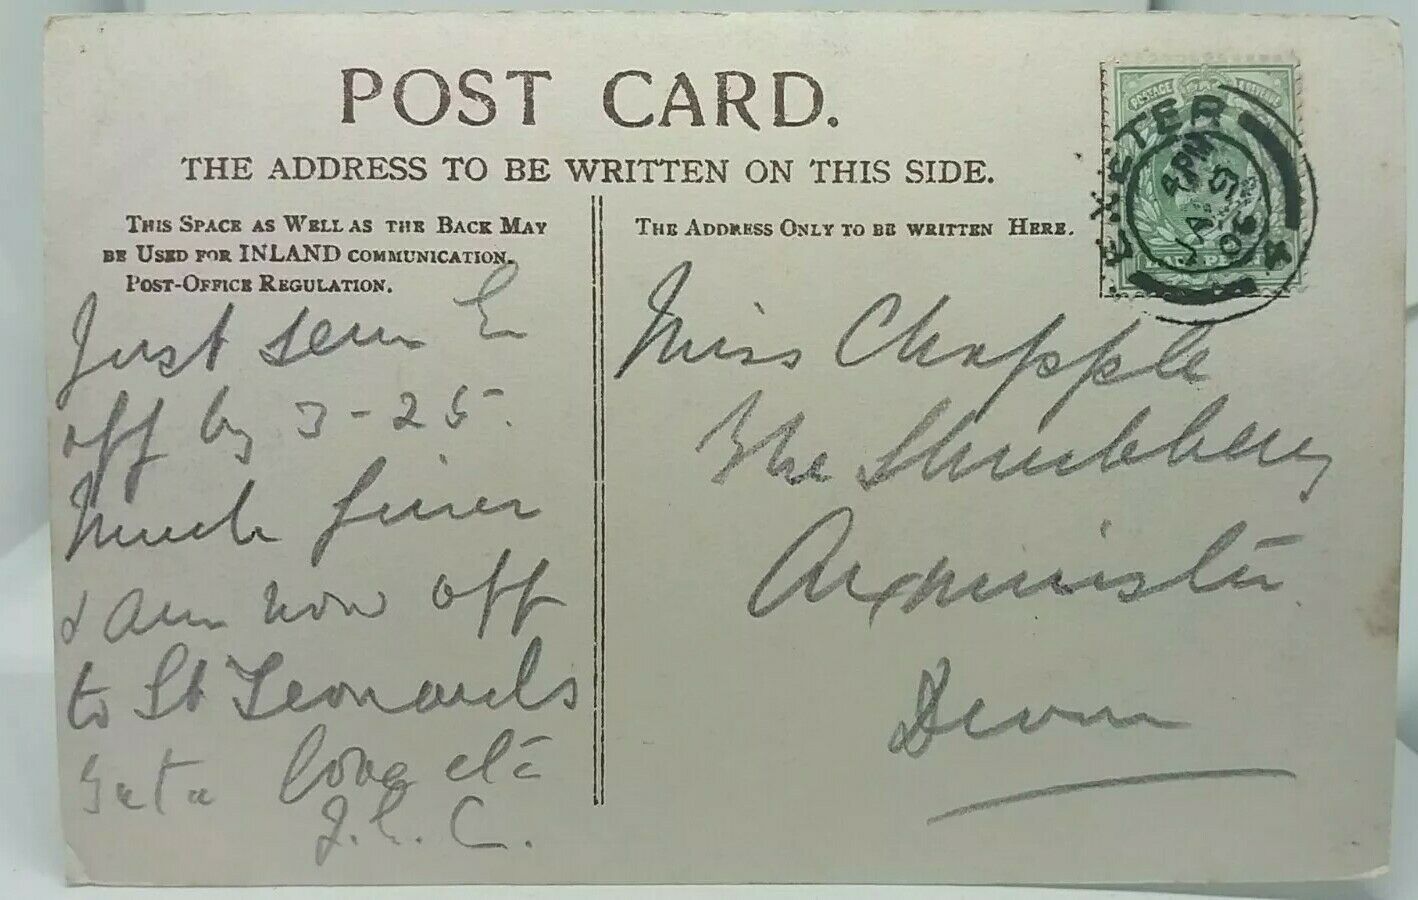 POST CARD.
THE ADDRESS TO BE WRITTEN ON THIS SIDE.
THIS SPACE AS WELL AS THE BACK MAY
BE USED FOR INLAND COMMUNICATION.
POST-OFFICE REGULATION.
Just seen E
off by 3-25.
Much finer
& am now off
to St Leonards
love etc
J.L.C.
THE ADDRESS ONLY TO BE WRITTEN HERE.
Miss Chapple
The Shrubbery
Axminster
Devon
POSTAGE REVENUE
EXETER
4 PM
JA 5
05
4